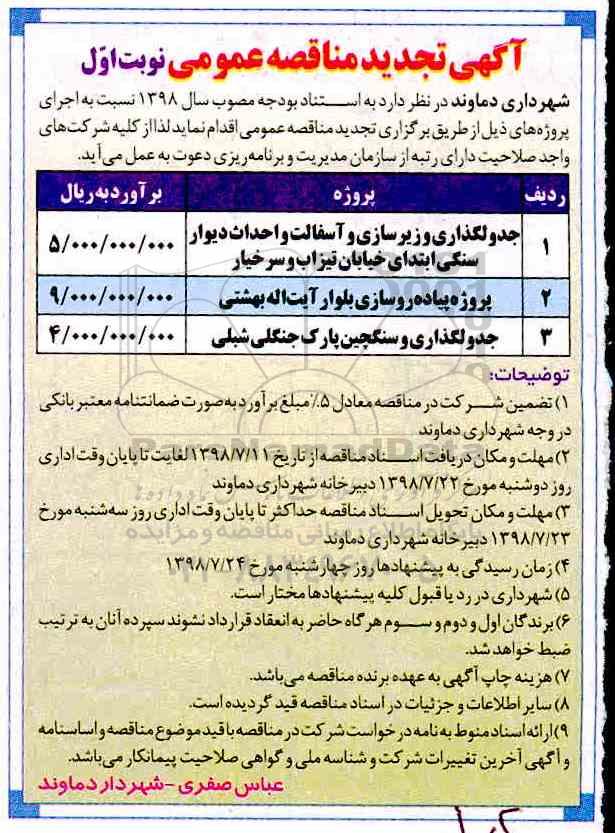 آگهی تجدید مناقصه عمومی نوبت اوّل
شهرداری دماوند در نظر دارد به استناد بودجه مصوب سال ۱۳۹۸ نسبت به اجرای
پروژه‌های ذیل از طریق برگزاری تجدید مناقصه عمومی اقدام نماید لذا از کلیه شرکت‌های
واجد صلاحیت دارای رتبه از سازمان مدیریت و برنامه‌ریزی دعوت به عمل می‌آید.
ردیف پروژه برآورد به ریال
۱ جدولگذاری و زیرسازی و آسفالت و احداث دیوار سنگی ابتدای خیابان تیزاب و سرخیار ۵/۰۰۰/۰۰۰/۰۰۰
۲ پروژه پیاده‌روسازی بلوار آیت‌اله بهشتی ۹/۰۰۰/۰۰۰/۰۰۰
۳ جدولگذاری و سنگچین پارک جنگلی شبلی ۴/۰۰۰/۰۰۰/۰۰۰
توضیحات:
۱) تضمین شرکت در مناقصه معادل ۵٪ مبلغ برآورد به‌صورت ضمانتنامه معتبر بانکی
در وجه شهرداری دماوند
۲) مهلت و مکان دریافت اسناد مناقصه از تاریخ ۱۳۹۸/۷/۱۱ لغایت تا پایان وقت اداری
روز دوشنبه مورخ ۱۳۹۸/۷/۲۲ دبیرخانه شهرداری دماوند
۳) مهلت و مکان تحویل اسناد مناقصه حداکثر تا پایان وقت اداری روز سه‌شنبه مورخ
۱۳۹۸/۷/۲۳ دبیرخانه شهرداری دماوند
۴) زمان رسیدگی به پیشنهادها روز چهارشنبه مورخ ۱۳۹۸/۷/۲۴
۵) شهرداری در رد یا قبول کلیه پیشنهادها مختار است.
۶) برندگان اول و دوم و سوم هرگاه حاضر به انعقاد قرارداد نشوند سپرده آنان به ترتیب
ضبط خواهد شد.
۷) هزینه چاپ آگهی به عهده برنده مناقصه می‌باشد.
۸) سایر اطلاعات و جزئیات در اسناد مناقصه قید گردیده است.
۹) ارائه اسناد منوط به نامه درخواست شرکت در مناقصه با قید موضوع مناقصه و اساسنامه
و آگهی آخرین تغییرات شرکت و شناسه ملی و گواهی صلاحیت پیمانکار می‌باشد.
عباس صفری - شهردار دماوند